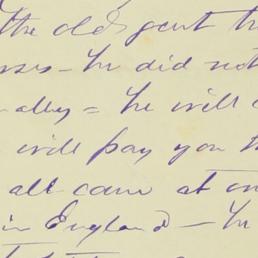 the old gent th
ses - he did not
alley = he will
will pay you th
all came at on
in England - he